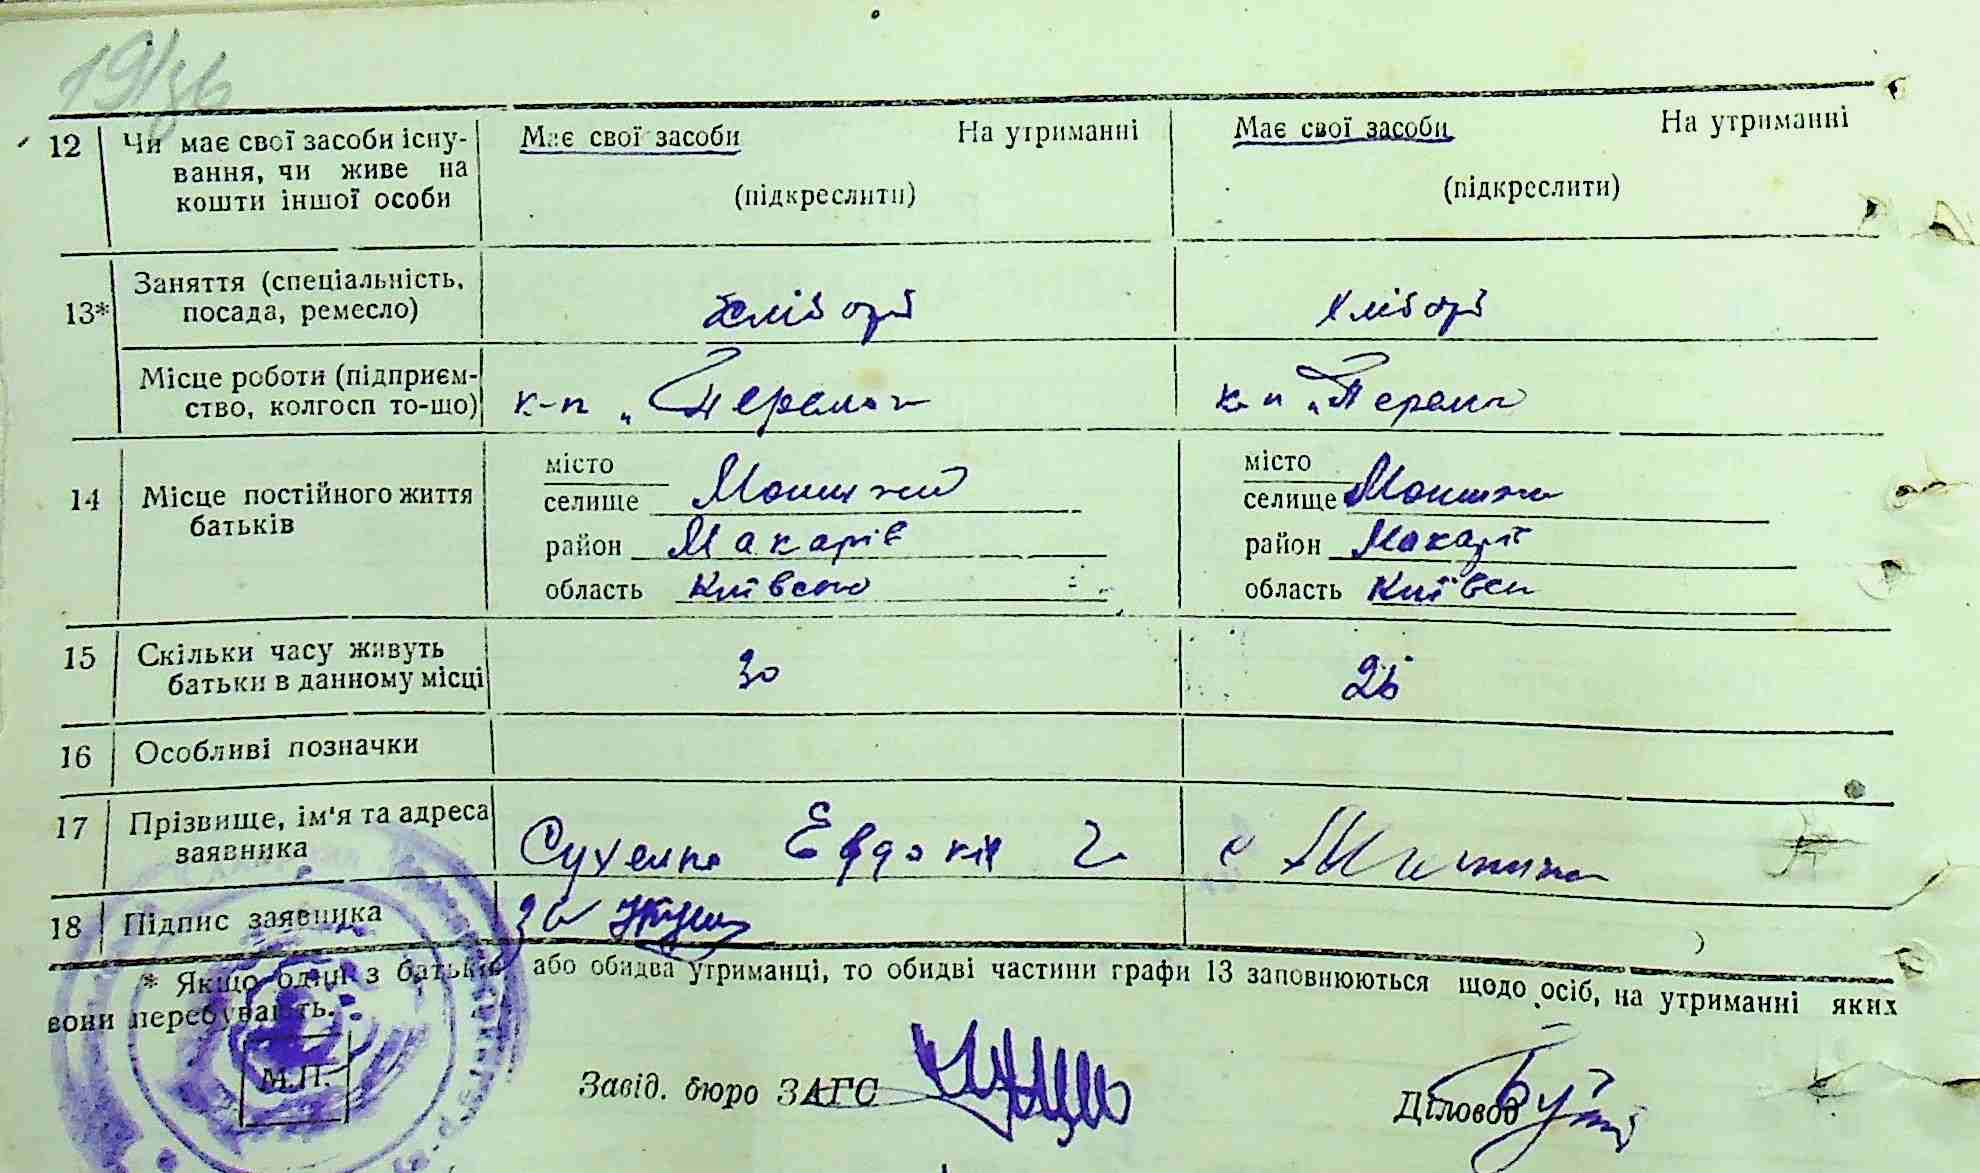 12 Чи має свої засоби існу-
вання, чи живе на
кошти іншої особи
Має свої засоби На утриманні
(підкреслити)
Має свої засоби На утриманні
(підкреслити)
13* Заняття (спеціальність,
посада, ремесло)
хлібороб
хлібороб
Місце роботи (підприєм-
ство, колгосп то-що)
к-п „
к-п „
14 Місце постійного життя
батьків
місто
селище
район Макарів
область Київська
місто
селище
район Макарів
область Київськ
15 Скільки часу живуть
батьки в данному місці
30
16 Особливі позначки
17 Прізвище, ім'я та адреса
заявника
Сухенко Евдокія с
18 Підпис заявника
за
* Якщо один з батьків, або обидва утриманці, то обидві частини графи 13 заповнюються щодо осіб, на утриманні яких
вони перебувають.
М.П.
Завід. бюро ЗАГС
Діловод